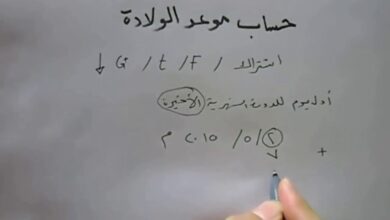 حساب موعد الولادة
/ F / t / G ↓
أول يوم للدورة الشهرية الأخيرة
٢ / ٥ / ٢٠١٥ م
+ ٧